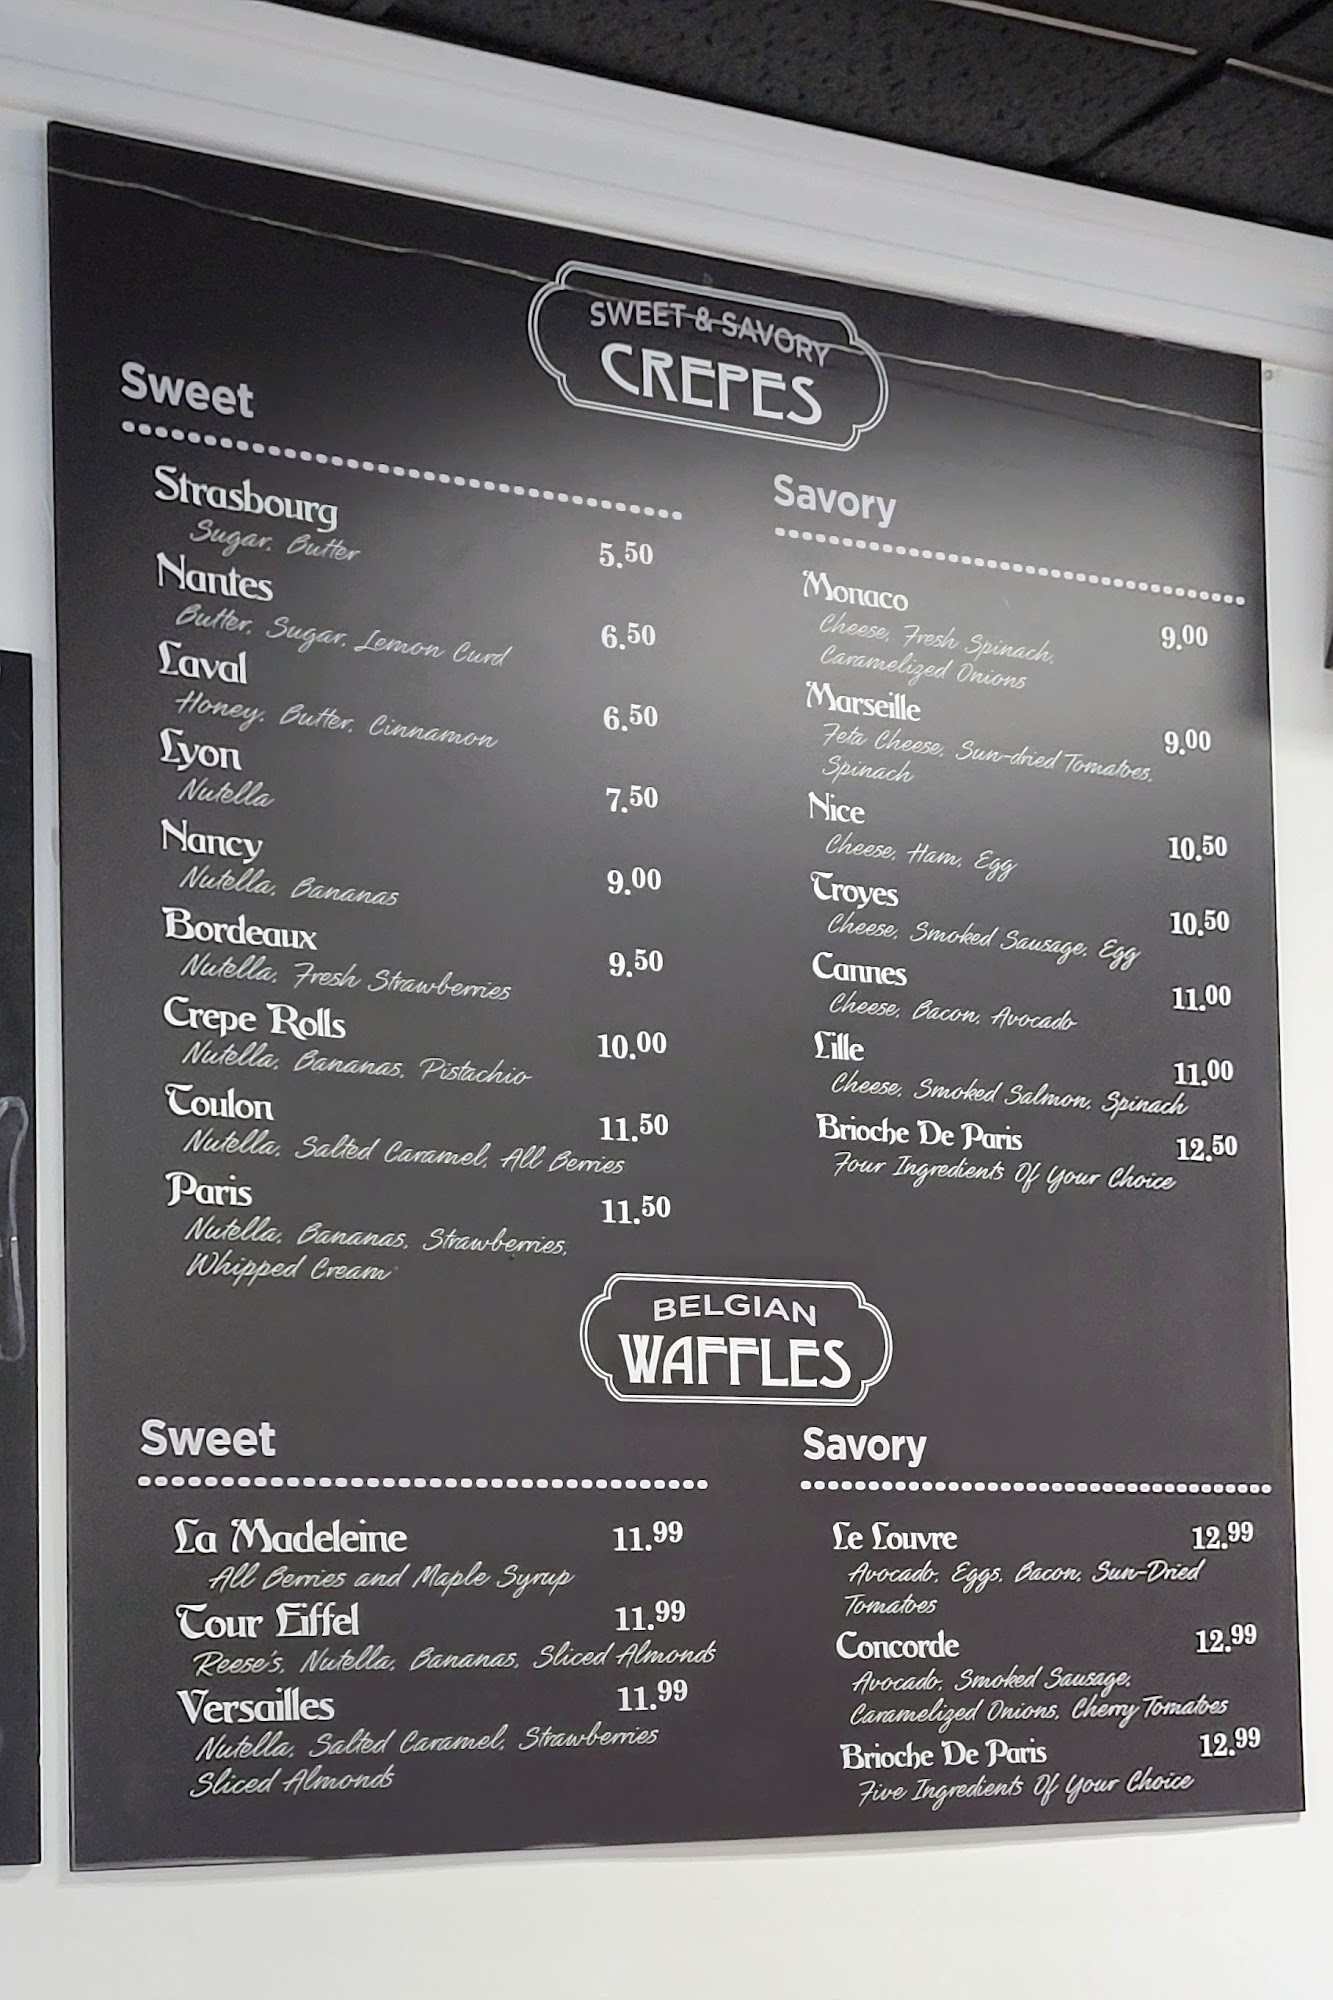 SWEET & SAVORY
CREPES
Sweet
Strasbourg
Sugar, Butter
5.50
Nantes
Butter, Sugar, Lemon Curd
6.50
Laval
Honey, Butter, Cinnamon
6.50
Lyon
Nutella
7.50
Nancy
Nutella, Bananas
9.00
Bordeaux
Nutella, Fresh Strawberries
9.50
Crepe Rolls
Nutella, Bananas, Pistachio
10.00
Toulon
Nutella, Salted Caramel, All Berries
11.50
Paris
Nutella, Bananas, Strawberries,
Whipped Cream
11.50
Savory
Monaco
Cheese, Fresh Spinach,
Caramelized Onions
9.00
Marseille
Feta Cheese, Sun-dried Tomatoes,
Spinach
9.00
Nice
Cheese, Ham, Egg
10.50
Troyes
Cheese, Smoked Sausage, Egg
10.50
Cannes
Cheese, Bacon, Avocado
11.00
Lille
Cheese, Smoked Salmon, Spinach
11.00
Brioche De Paris
Four Ingredients Of Your Choice
12.50
BELGIAN
WAFFLES
Sweet
La Madeleine 11.99
All Berries and Maple Syrup
Tour Eiffel 11.99
Reese's, Nutella, Bananas, Sliced Almonds
Versailles 11.99
Nutella, Salted Caramel, Strawberries
Sliced Almonds
Savory
Le Louvre 12.99
Avocado, Eggs, Bacon, Sun-Dried
Tomatoes
Concorde 12.99
Avocado, Smoked Sausage,
Caramelized Onions, Cherry Tomatoes
Brioche De Paris 12.99
Five Ingredients Of Your Choice